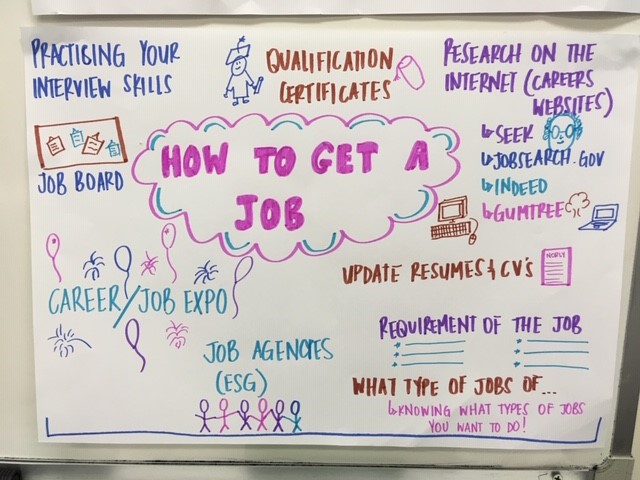 PRACTISING YOUR
INTERVIEW SKILLS
QUALIFICATION
CERTIFICATES
RESEARCH ON THE
INTERNET (CAREERS
WEBSITES)
↳SEEK
↳JOBSEARCH.GOV
↳INDEED
↳GUMTREE
JOB BOARD
HOW TO GET A
JOB
UPDATE RESUMES & CV'S
CAREER/JOB EXPO
JOB AGENCIES
(ESG)
REQUIREMENT OF THE JOB
WHAT TYPE OF JOBS OF...
↳KNOWING WHAT TYPES OF JOBS
YOU WANT TO DO!